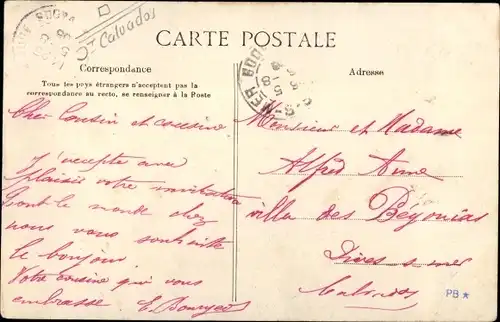 Calvados
CARTE POSTALE
Correspondance
Adresse
Tous les pays étrangers n'acceptent pas la
correspondance au recto, se renseigner à la Poste
Cher Cousin et cousine
J'accepte avec
plaisir votre invitation
tout le monde chez
nous vous souhaite
le bonjour
Votre cousine qui vous
embrasse E.
Monsieur et Madame
Alfred Anne
villa des Bégonias
Dives s mer
Calvados
PB